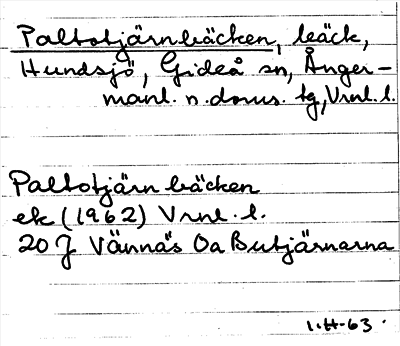 Paltotjärnbäcken, bäck,
Hundsjö, Gideå sn, Ånger-
manl. n. doms. tg, Vrnl. l.
Paltotjärnbäcken
ek (1962) Vrnl. l.
20 J Vännäs Oa Butjärnarna
63